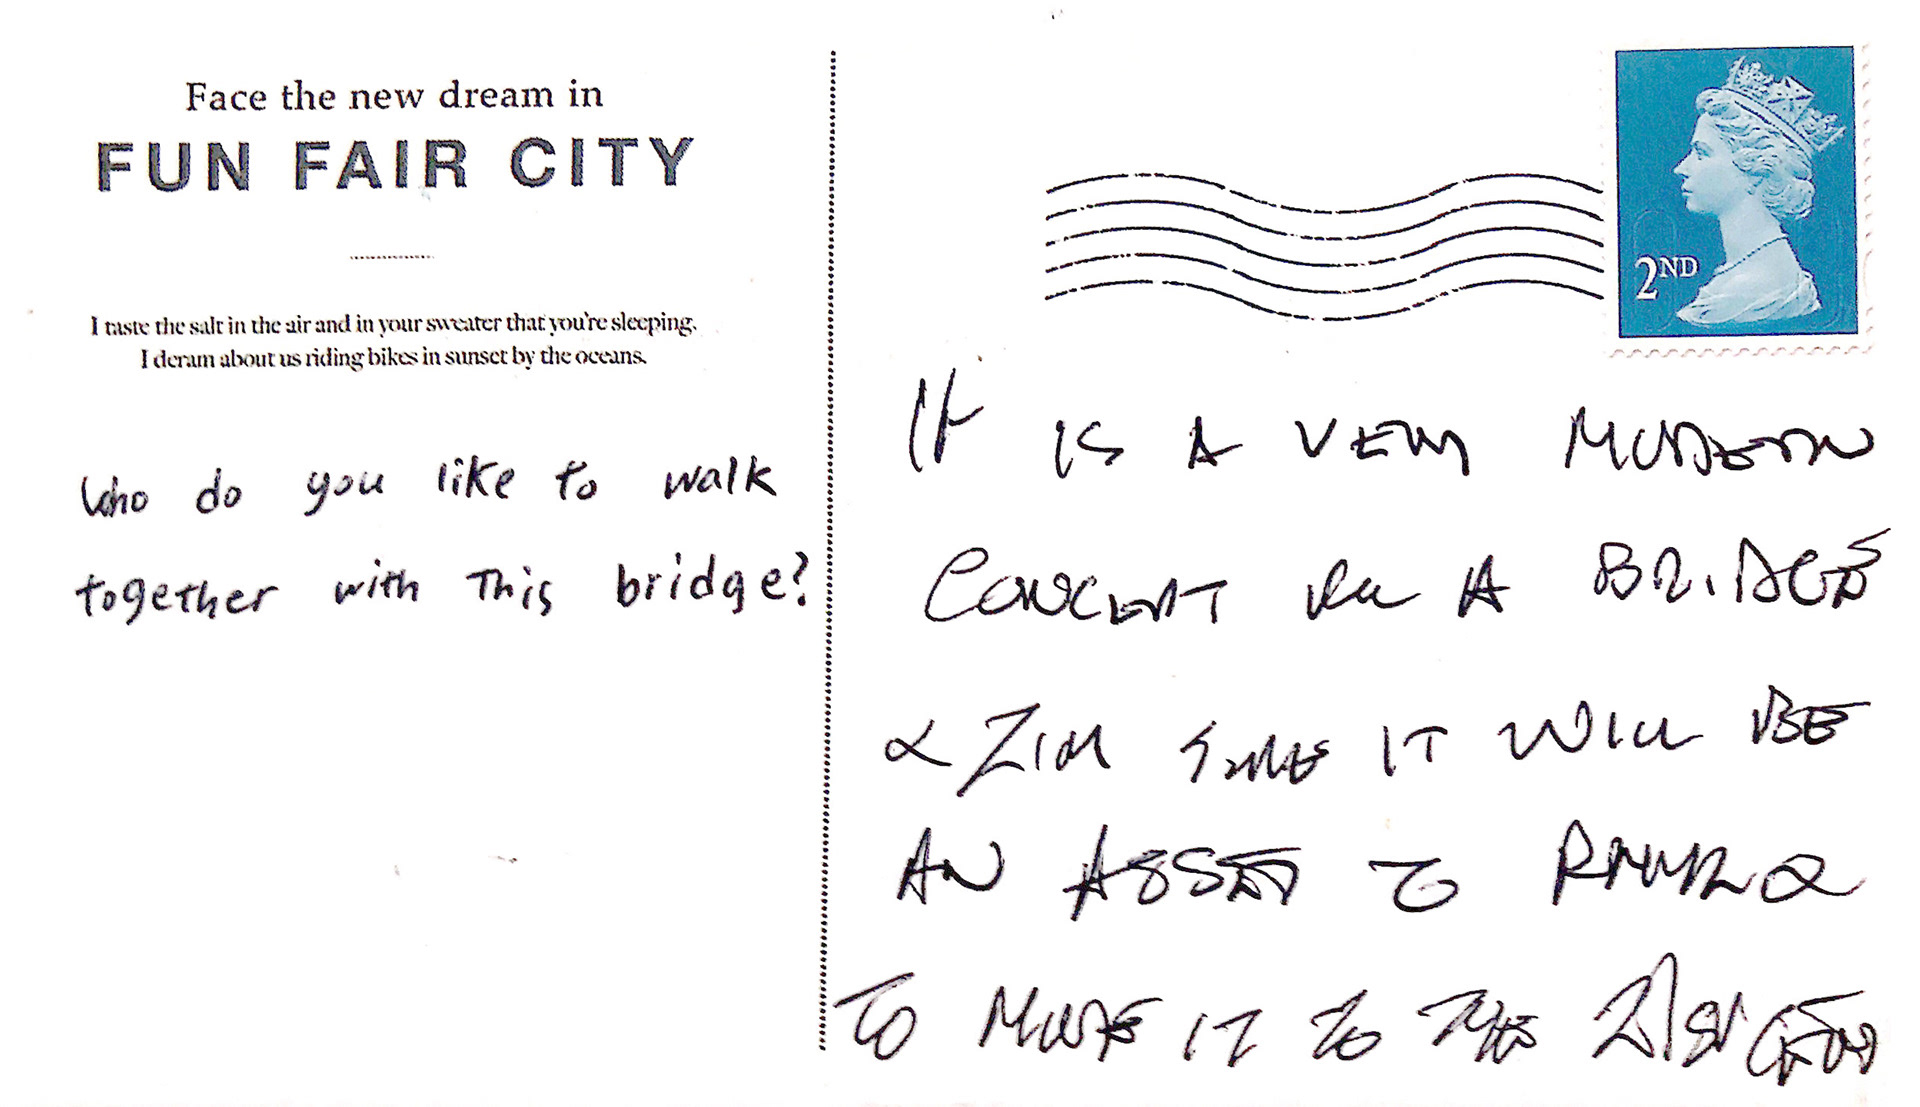 Face the new dream in
FUN FAIR CITY
I taste the salt in the air and in your sweater that you're sleeping.
I deram about us riding bikes in sunset by the oceans.
Who do you like to walk
together with This bridge?
2ND
It IS A VERY MODERN
CONCEPT A BRIDGE
SURE IT WILL BE
AN ASSET TO
TO MOVE IT TO THE